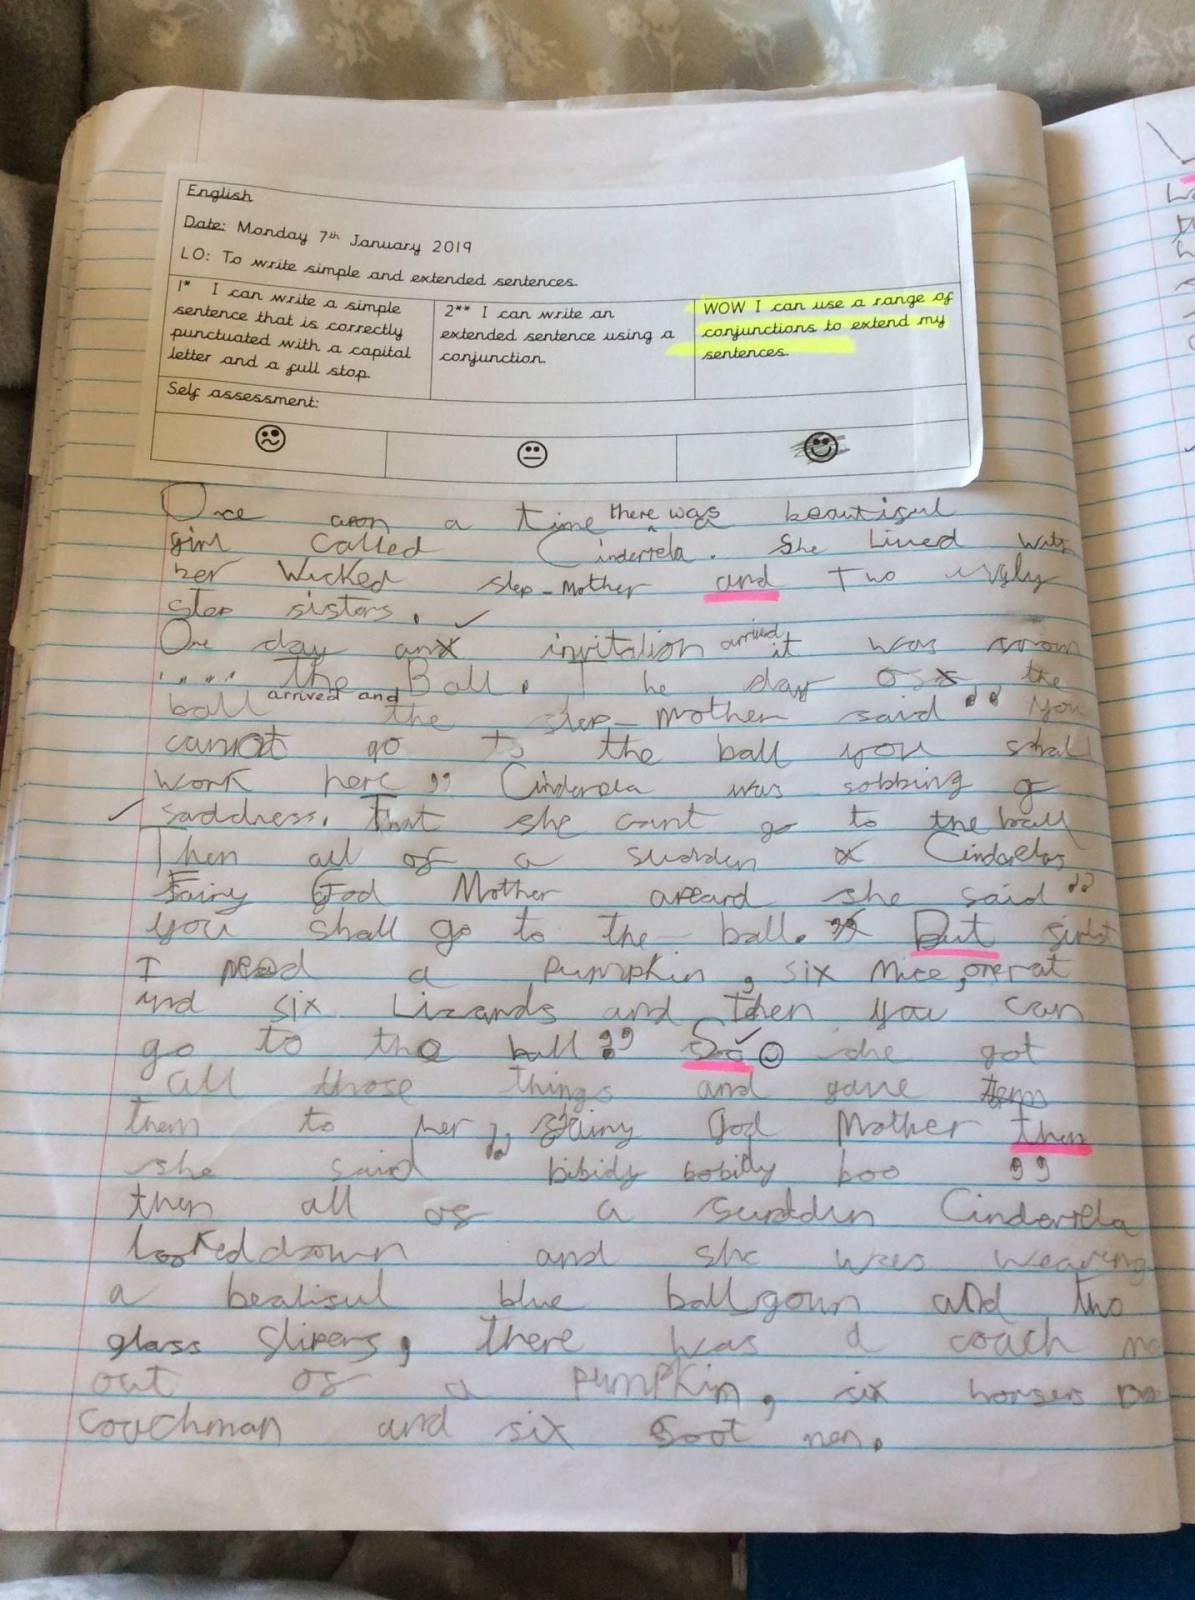 English
Date: Monday 7th January 2019
LO: To write simple and extended sentences.
1* I can write a simple
sentence that is correctly
punctuated with a capital
letter and a full stop.
2** I can write an
extended sentence using a
conjunction.
WOW I can use a range of
conjunctions to extend my
sentences.
Self assessment:
Once apon a time there was a beautiful
girl called Cinderrela. She Lived with
her Wicked step-Mother and Two ugly
step sisters.
One day an invitation arrived it was from
..... The Ball. The day of the
ball arrived and the step-Mother said " you
cannot go to the ball you shall
work here " Cinderela was sobbing of
saddness. That she cant go to the ball
Then all of a sudden Cinderelas
Fairy God Mother apeard she said "
you shall go to the ball. But first
I need a pumpkin, six Mice, one rat
and six Lizards and then you can
go to the ball " So she got
all those things and gave
them to her fairy God Mother then
she said " bibidy bobidy boo "
then all of a sudden Cinderrela
looked down and she was wearing
a beatiful blue ball goun and two
glass slipers, there was a coach
out of a pumpkin, six horsers
couchman and six foot men.